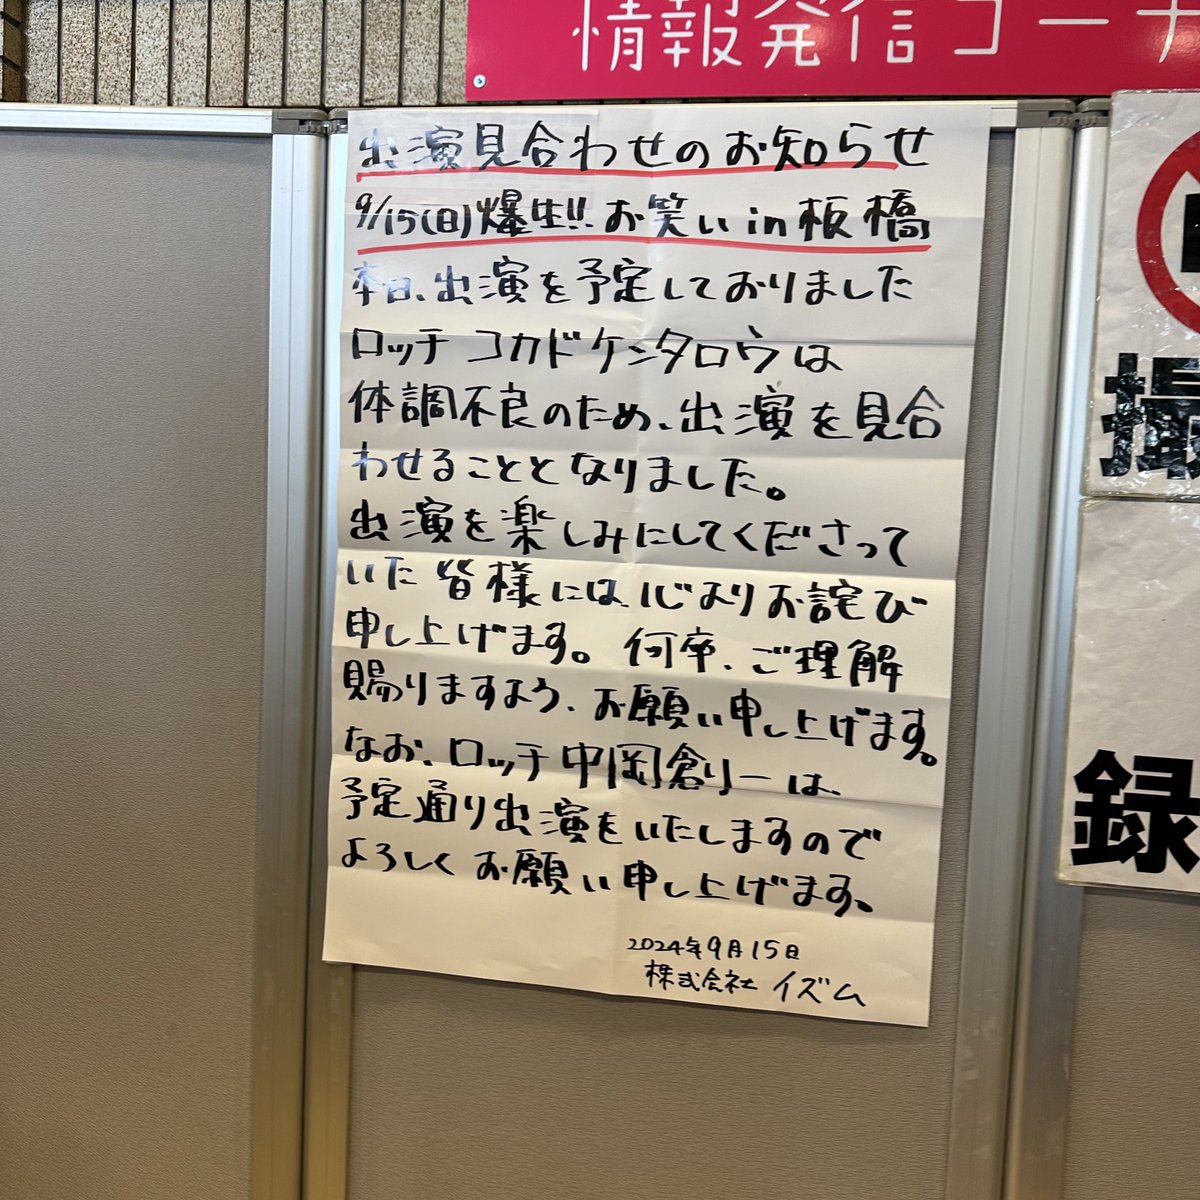 情報発信コーナ
出演見合わせのお知らせ
9/15(日)爆生!!お笑いin板橋
本日、出演を予定しておりました
ロッチ コカドケンタロウは
体調不良のため、出演を見合
わせることとなりました。
出演を楽しみにしてくださって
いた皆様には、心よりお詫び
申し上げます。何卒、ご理解
賜りますよう、お願い申し上げます。
なお、ロッチ中岡創一は、
予定通り出演をいたしますので
よろしくお願い申し上げます。
2024年9月15日
株式会社イズム
撮
録